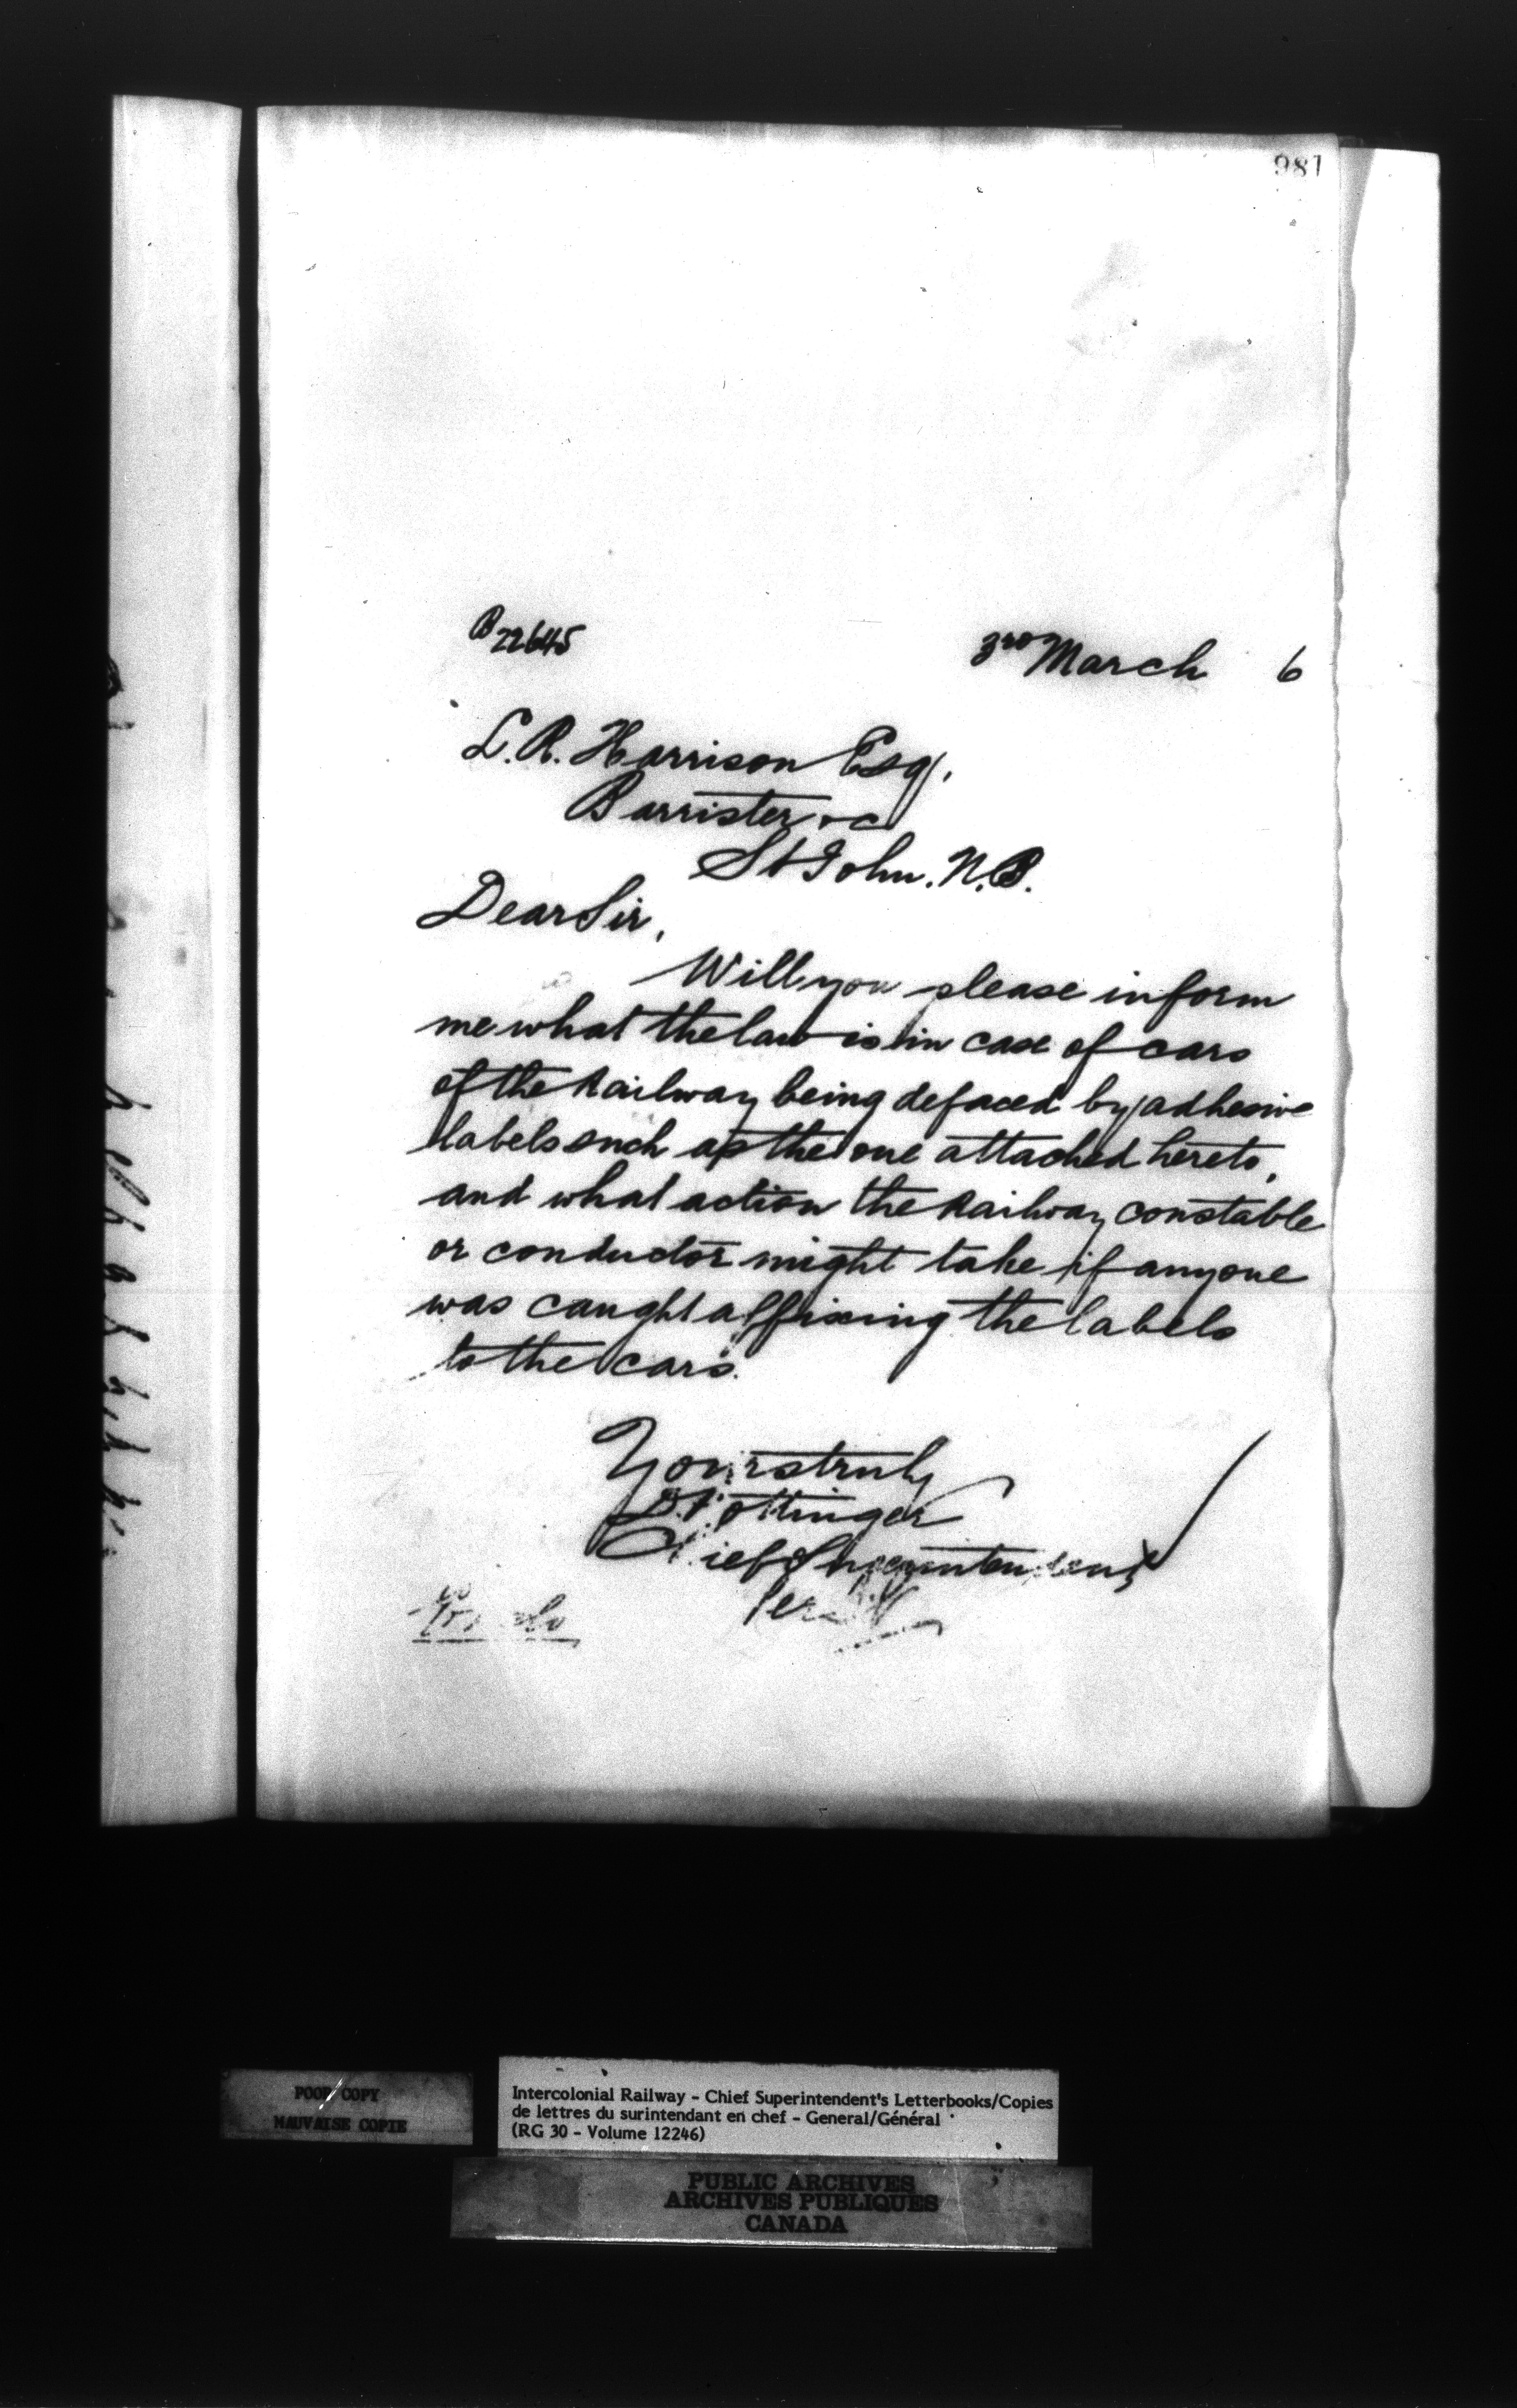 981
B 22645
3rd March 6
L. R. Harrison Esq.
Barrister &c
St John. N.B.
Dear Sir,
Will you please inform
me what the law is in case of cars
of the Railway being defaced by adhesive
labels such as the one attached hereto,
and what action the Railway constable
or conductor might take if anyone
was caught affixing the labels
to the cars.
Yours truly
D. Pottinger
Chief Superintendent
Per
POOR COPY
MAUVAISE COPIE
Intercolonial Railway - Chief Superintendent's Letterbooks/Copies
de lettres du surintendant en chef - General/Général
(RG 30 - Volume 12246)
PUBLIC ARCHIVES
ARCHIVES PUBLIQUES
CANADA